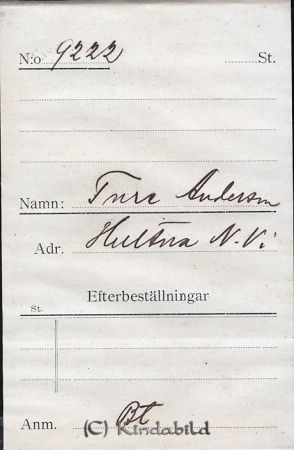 N:o 9222 St.
Namn: Ture Anderson
Adr. Hultna N. Vi
Efterbeställningar
St.
Anm. Bt
(C) Kindabild